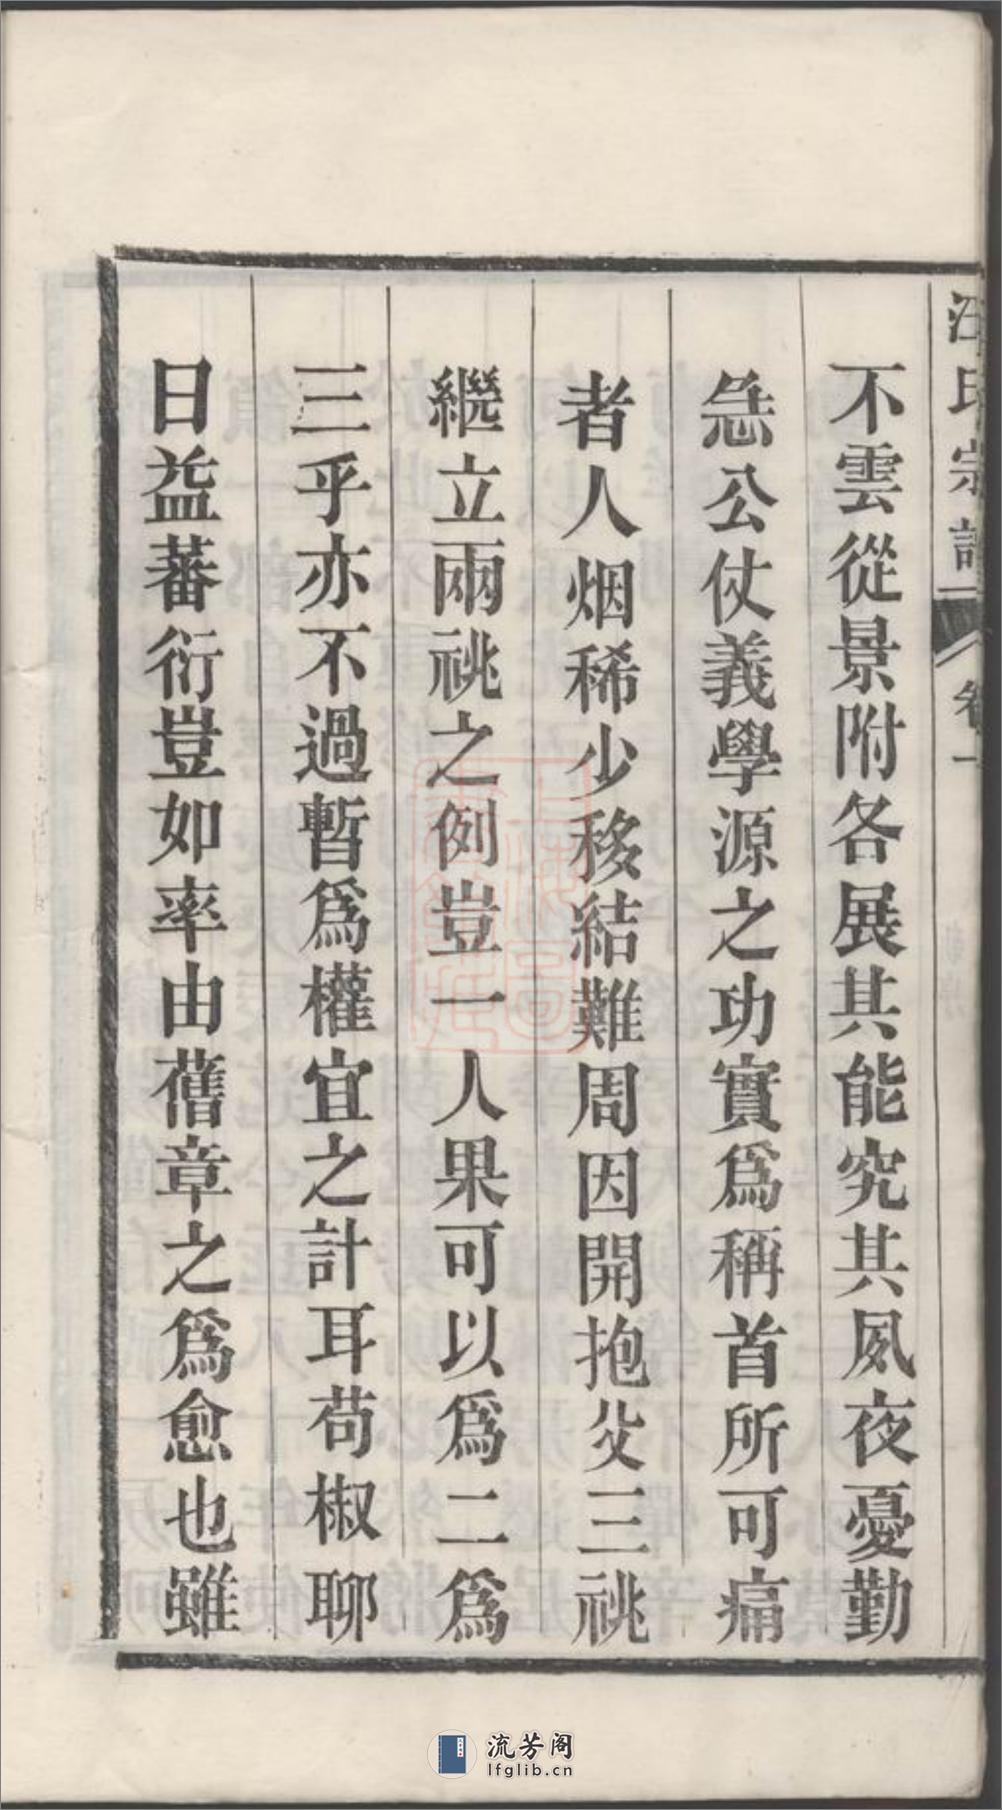 汪氏宗譜 卷一
不雲從景附各展其能究其夙夜憂勤
急公仗義學源之功實爲稱首所可痛
者人烟稀少移結難周因開抱父三祧
繼立兩祧之例豈一人果可以爲二爲
三乎亦不過暫爲權宜之計耳苟椒聊
日益蕃衍豈如率由舊章之爲愈也雖
流芳阁
lfglib.cn